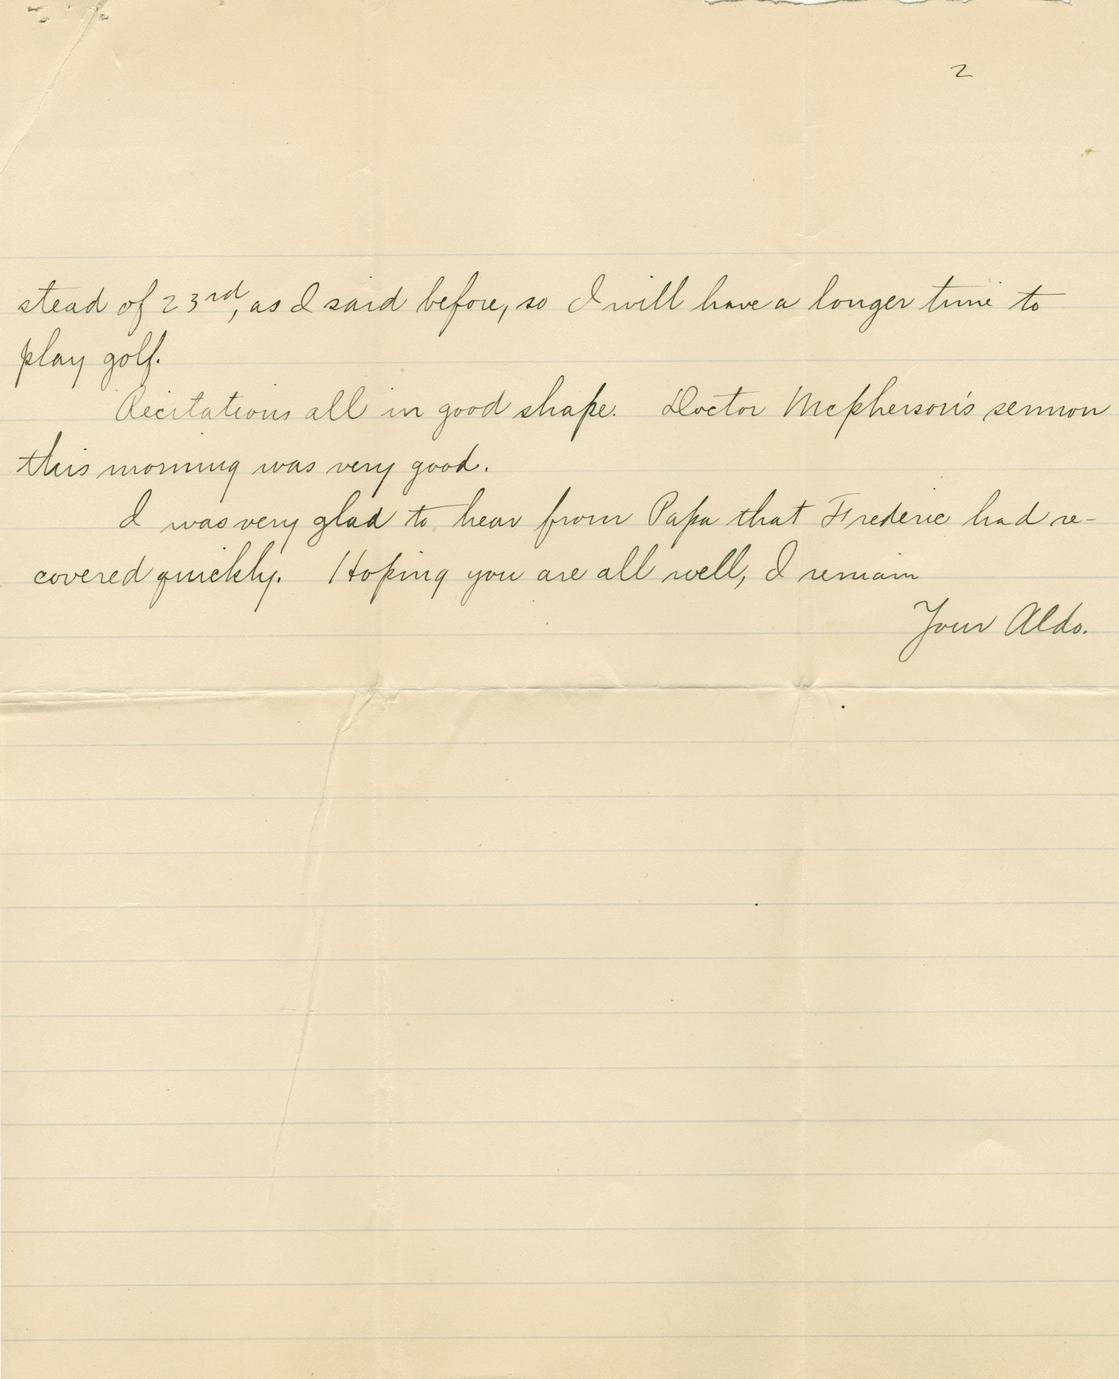 2
stead of 23rd, as I said before, so I will have a longer time to
play golf.
Recitations all in good shape. Doctor Mcpherson's sermon
this morning was very good.
I was very glad to hear from Papa that Frederic had re-
covered quickly. Hoping you are all well, I remain
Your Aldo.